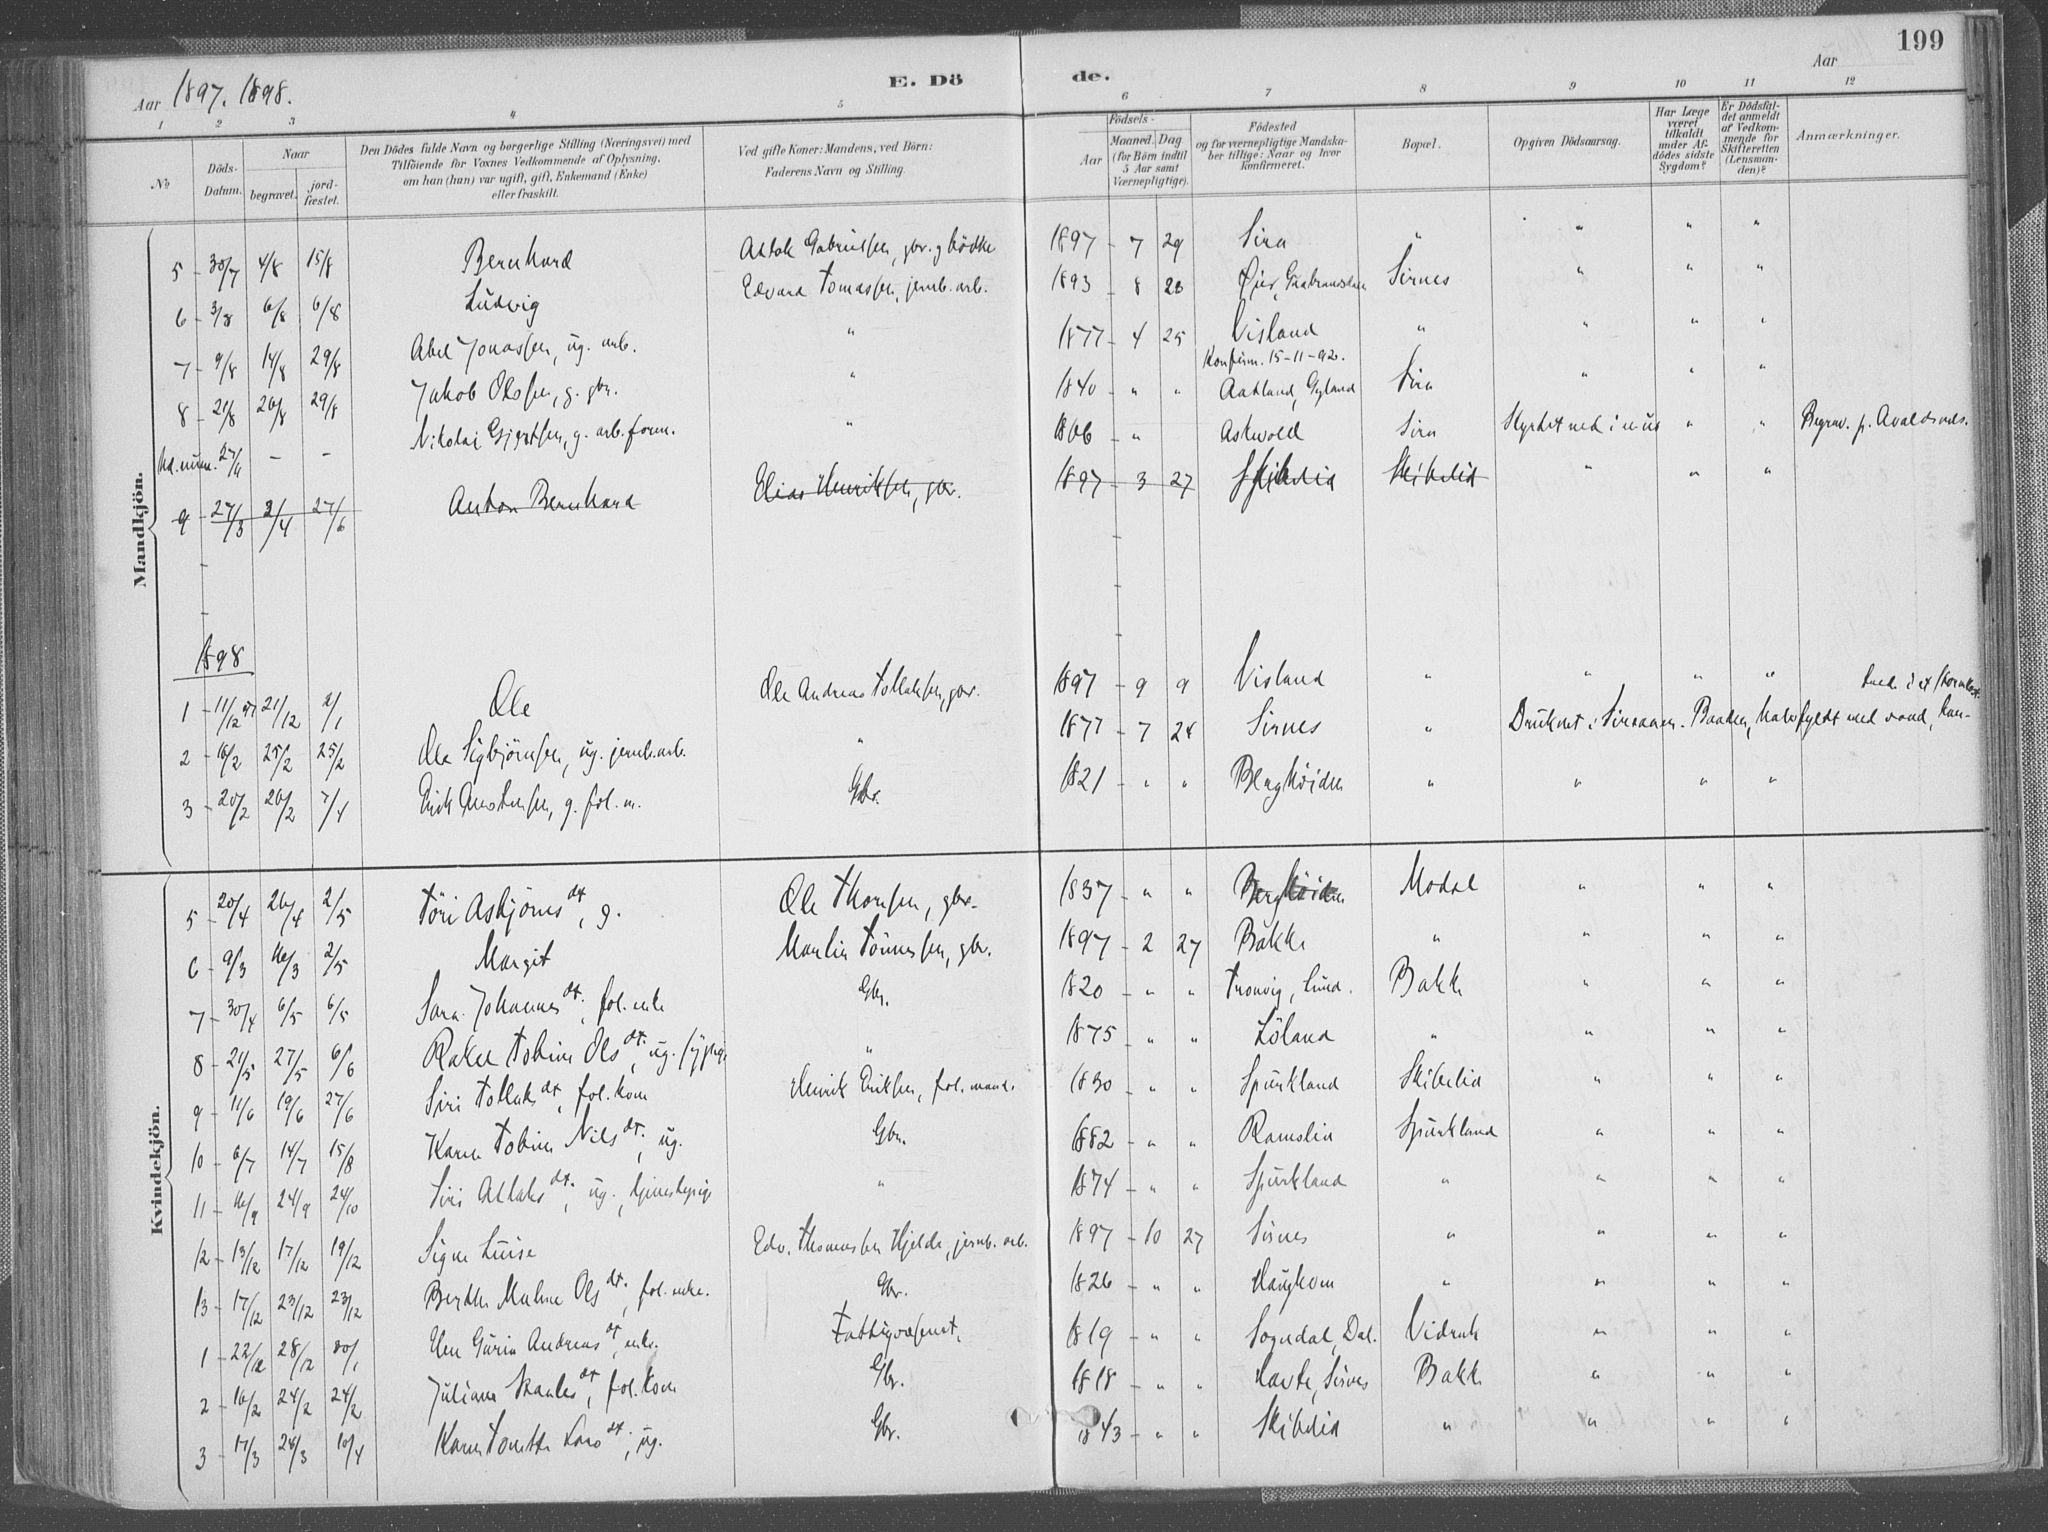 199
Aar 1897. 1898.
E. Dö de.
Aar
1 2 3 4 5 6 7 8 9 10 11 12
No
Döds-Datum.
Naar
begravet.
jord-fæstet.
Den Dödes fulde Navn og borgerlige Stilling (Næringsvei) med
Tilföiende for Voxnes Vedkommende af Oplysning,
om han (hun) var ugift, gift, Enkemand (Enke)
eller fraskilt.
Ved gifte Koner: Mandens, ved Börn:
Faderens Navn og Stilling.
Födsels-
Aar
Maaned. Dag
(for Börn indtil
5 Aar samt
Værnepligtige).
Födested
og for værnepligtige Mandska-
ber tillige: Naar og hvor
konfirmeret.
Bopæl.
Opgiven Dödsaarsag.
Har Læge
været
tilkaldt
under Af-
dødes sidste
Sygdom?
Er Dödsfal-
det anmeldt
af Vedkom-
mende for
Skifteretten
(Lensman-
den)?
Anmærkninger.
Mandkjön.
5 30/7 4/8 15/8 Bernhard Gabrielsen, gbr. 1897 7 29 Sira "
6 3/8 6/8 6/8 Ludvig Edvard Tomassen, jernb. arb. 1893 8 Øier, Gudbrandsdalen Sirnes
7 9/8 14/8 29/8 Abel Jonassen, ug. arb. " 1877 4 25 Visland "
Konfirm. 15-11-92.
8 21/8 26/8 29/8 Jakob Olssen, g. gbr. " 1840 " " Aatland, Gyland Sira
27/11 - - Nikolai Gjertsen, g. arb. form. " " Askvold Sira Begrav. p. Avaldsnes.
9 27/3 2/4 27/6 Anton Bernhard Elias Henriksen, gbr. 1897 3 27 Skibelid Skibelid
1898
1 11/12 97 21/12 2/1 Ole Ole Andreas Tollaksen, gbr. 1897 9 9 Visland "
2 16/2 25/2 25/2 Ole Sigbjörnsen, ug. jernb. arb. " 1877 7 24 Sirnes " Druknet i Sireaaen. Baaden, halvfyldt med vand,
3 20/2 26/2 7/4 g. fol. m. Gbr. 1821 " " Berghöiden "
Kvindekjön.
5 20/4 26/4 2/5 Töri Asbjörns dt, g. Ole Thorsen, gbr. 1837 " " Berghöiden Modal
6 9/3 16/3 2/5 Margit Tönnessen, gbr. 1897 2 27 Bakke "
7 30/4 6/5 6/5 Sara Johannes dt, fol. enke Gbr. 1820 " " Tronvig, Lund. Bakke
8 21/5 27/5 6/6 Rakel Tobine Ols dt, ug. " 1875 " " Löland "
9 11/6 19/6 27/6 Siri Tollaks dt, fol. kone Henrik Eriksen, fol. mand. 1830 " " Spurkland Skibelid
10 6/7 14/7 15/8 Karen Tobine Nils dt, ug. Gbr. 1882 " " Ramslid Spurkland
11 16/9 24/9 24/10 Siri Atlaks dt, ug. " 1874 " " Spurkland "
12 13/12 17/12 19/12 Signe Luise Edv. Thomassen Hjelde, jernb. arb. 1897 10 27 Sirnes "
13 17/12 23/12 23/12 Berthe Malene Ols dt, fol. enke. Gbr. 1826 " " Haughom "
1 22/12 28/12 30/1 Gurine Andreas dt, enke. Fattigvæsenet. 1819 " " Sogndal, Dal. Vidrak
2 16/2 24/2 24/2 Juliane dt, fol. kone Gbr. 1818 " " Sirnes Bakke
3 17/3 24/3 10/4 Karen Tonette Lars dt, ug. Gbr. 1843 " " Skibelid "